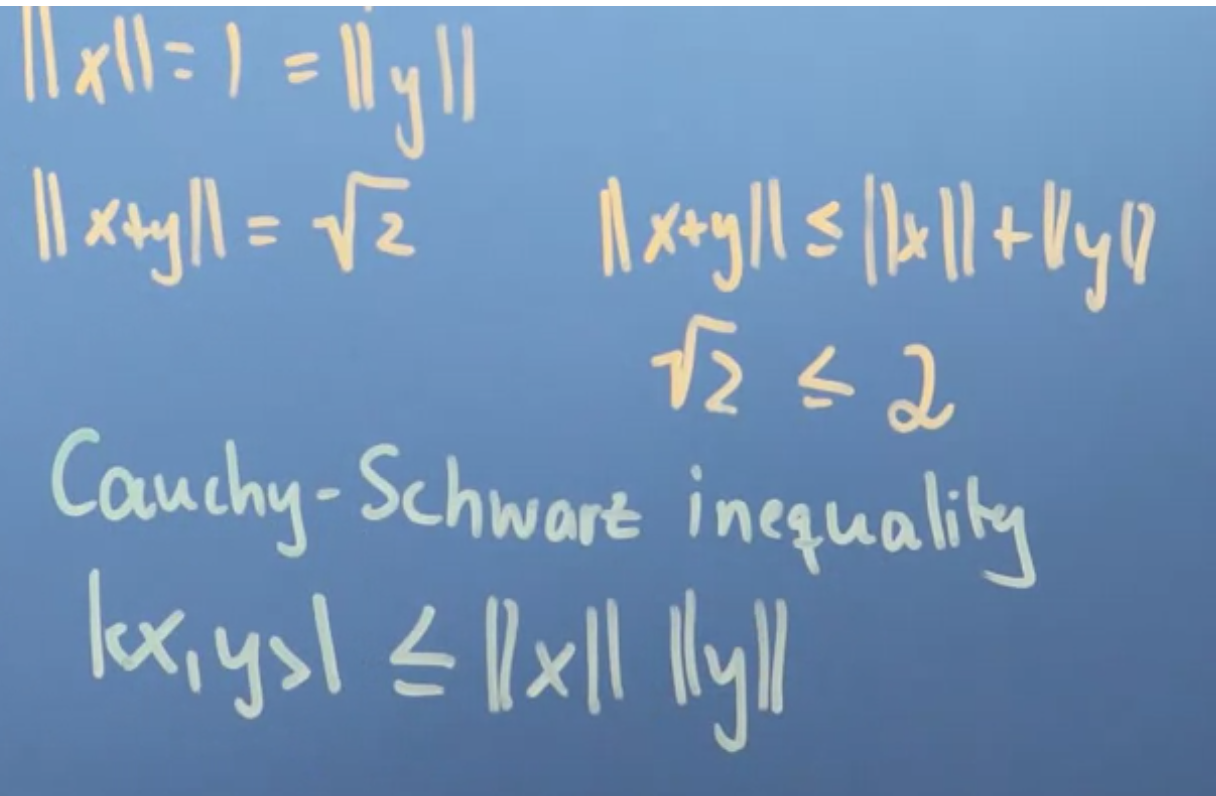 ||x|| = 1 = ||y||
||x+y|| = √2
||x+y|| ≤ ||x|| + ||y||
√2 ≤ 2
Cauchy-Schwarz inequality
|<x,y>| ≤ ||x|| ||y||